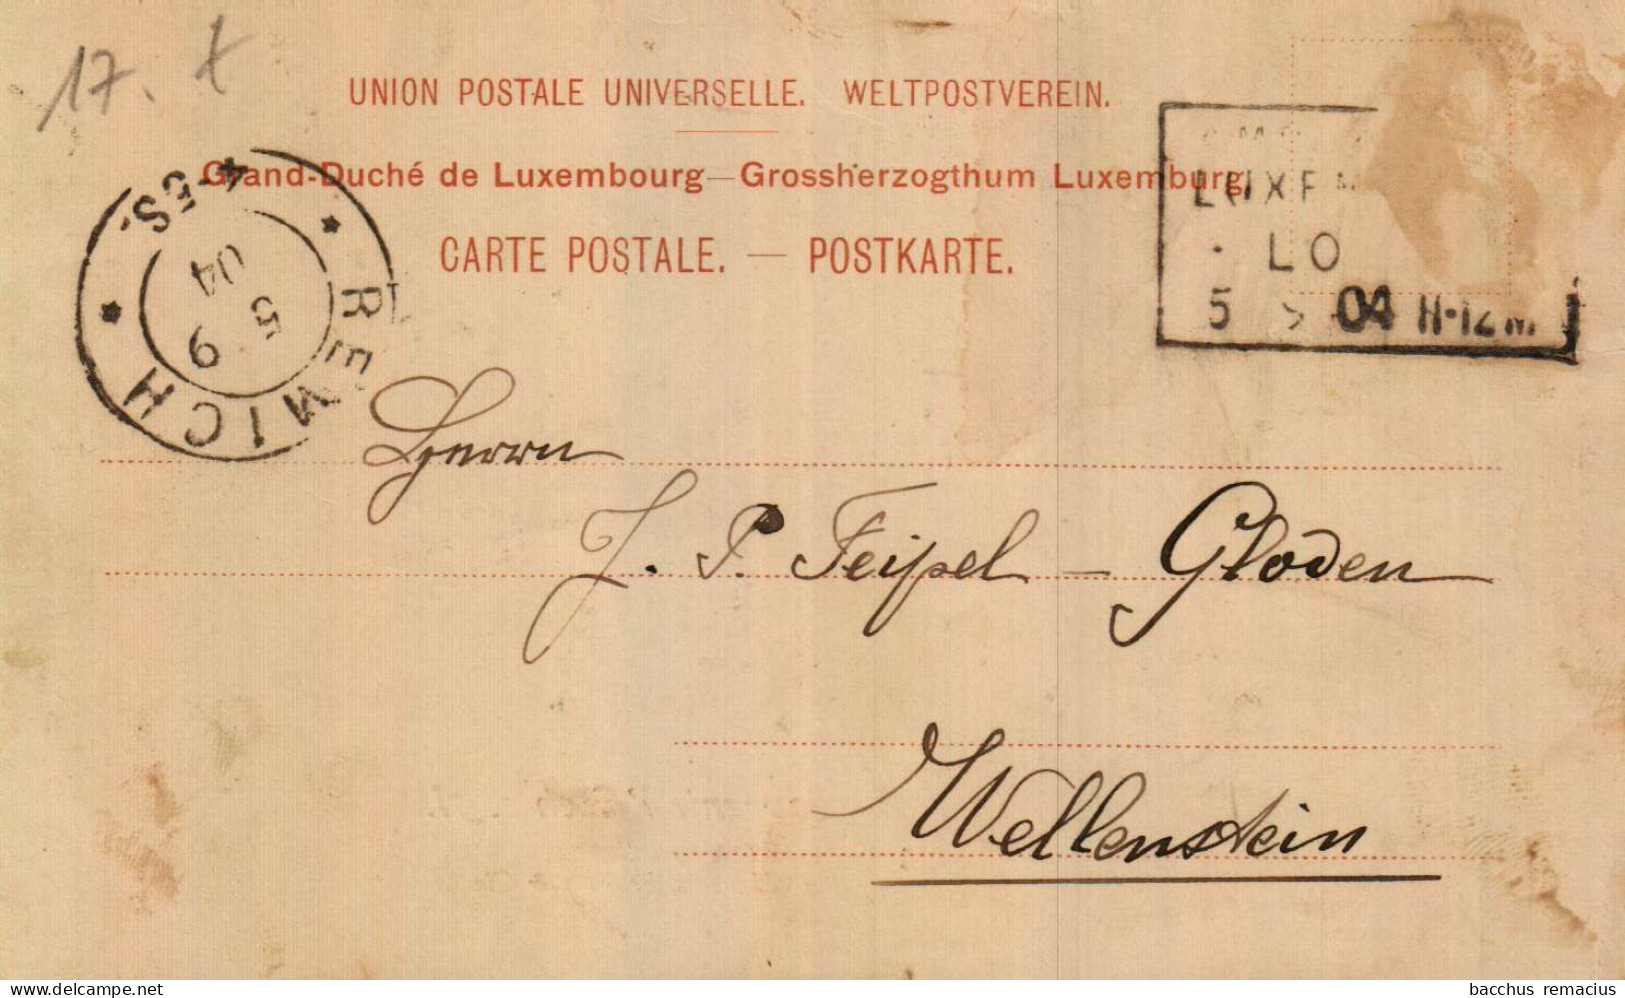 17. X
UNION POSTALE UNIVERSELLE. WELTPOSTVEREIN.
Grand-Duché de Luxembourg — Grossherzogthum Luxemburg
CARTE POSTALE. — POSTKARTE.
REMICH
4-5S.
5 9
04
LUXEM
5 04 11-12M
Herrn
J. P. Feipel - Gloden
Wellenstein
delcampe.net
bacchus remacius